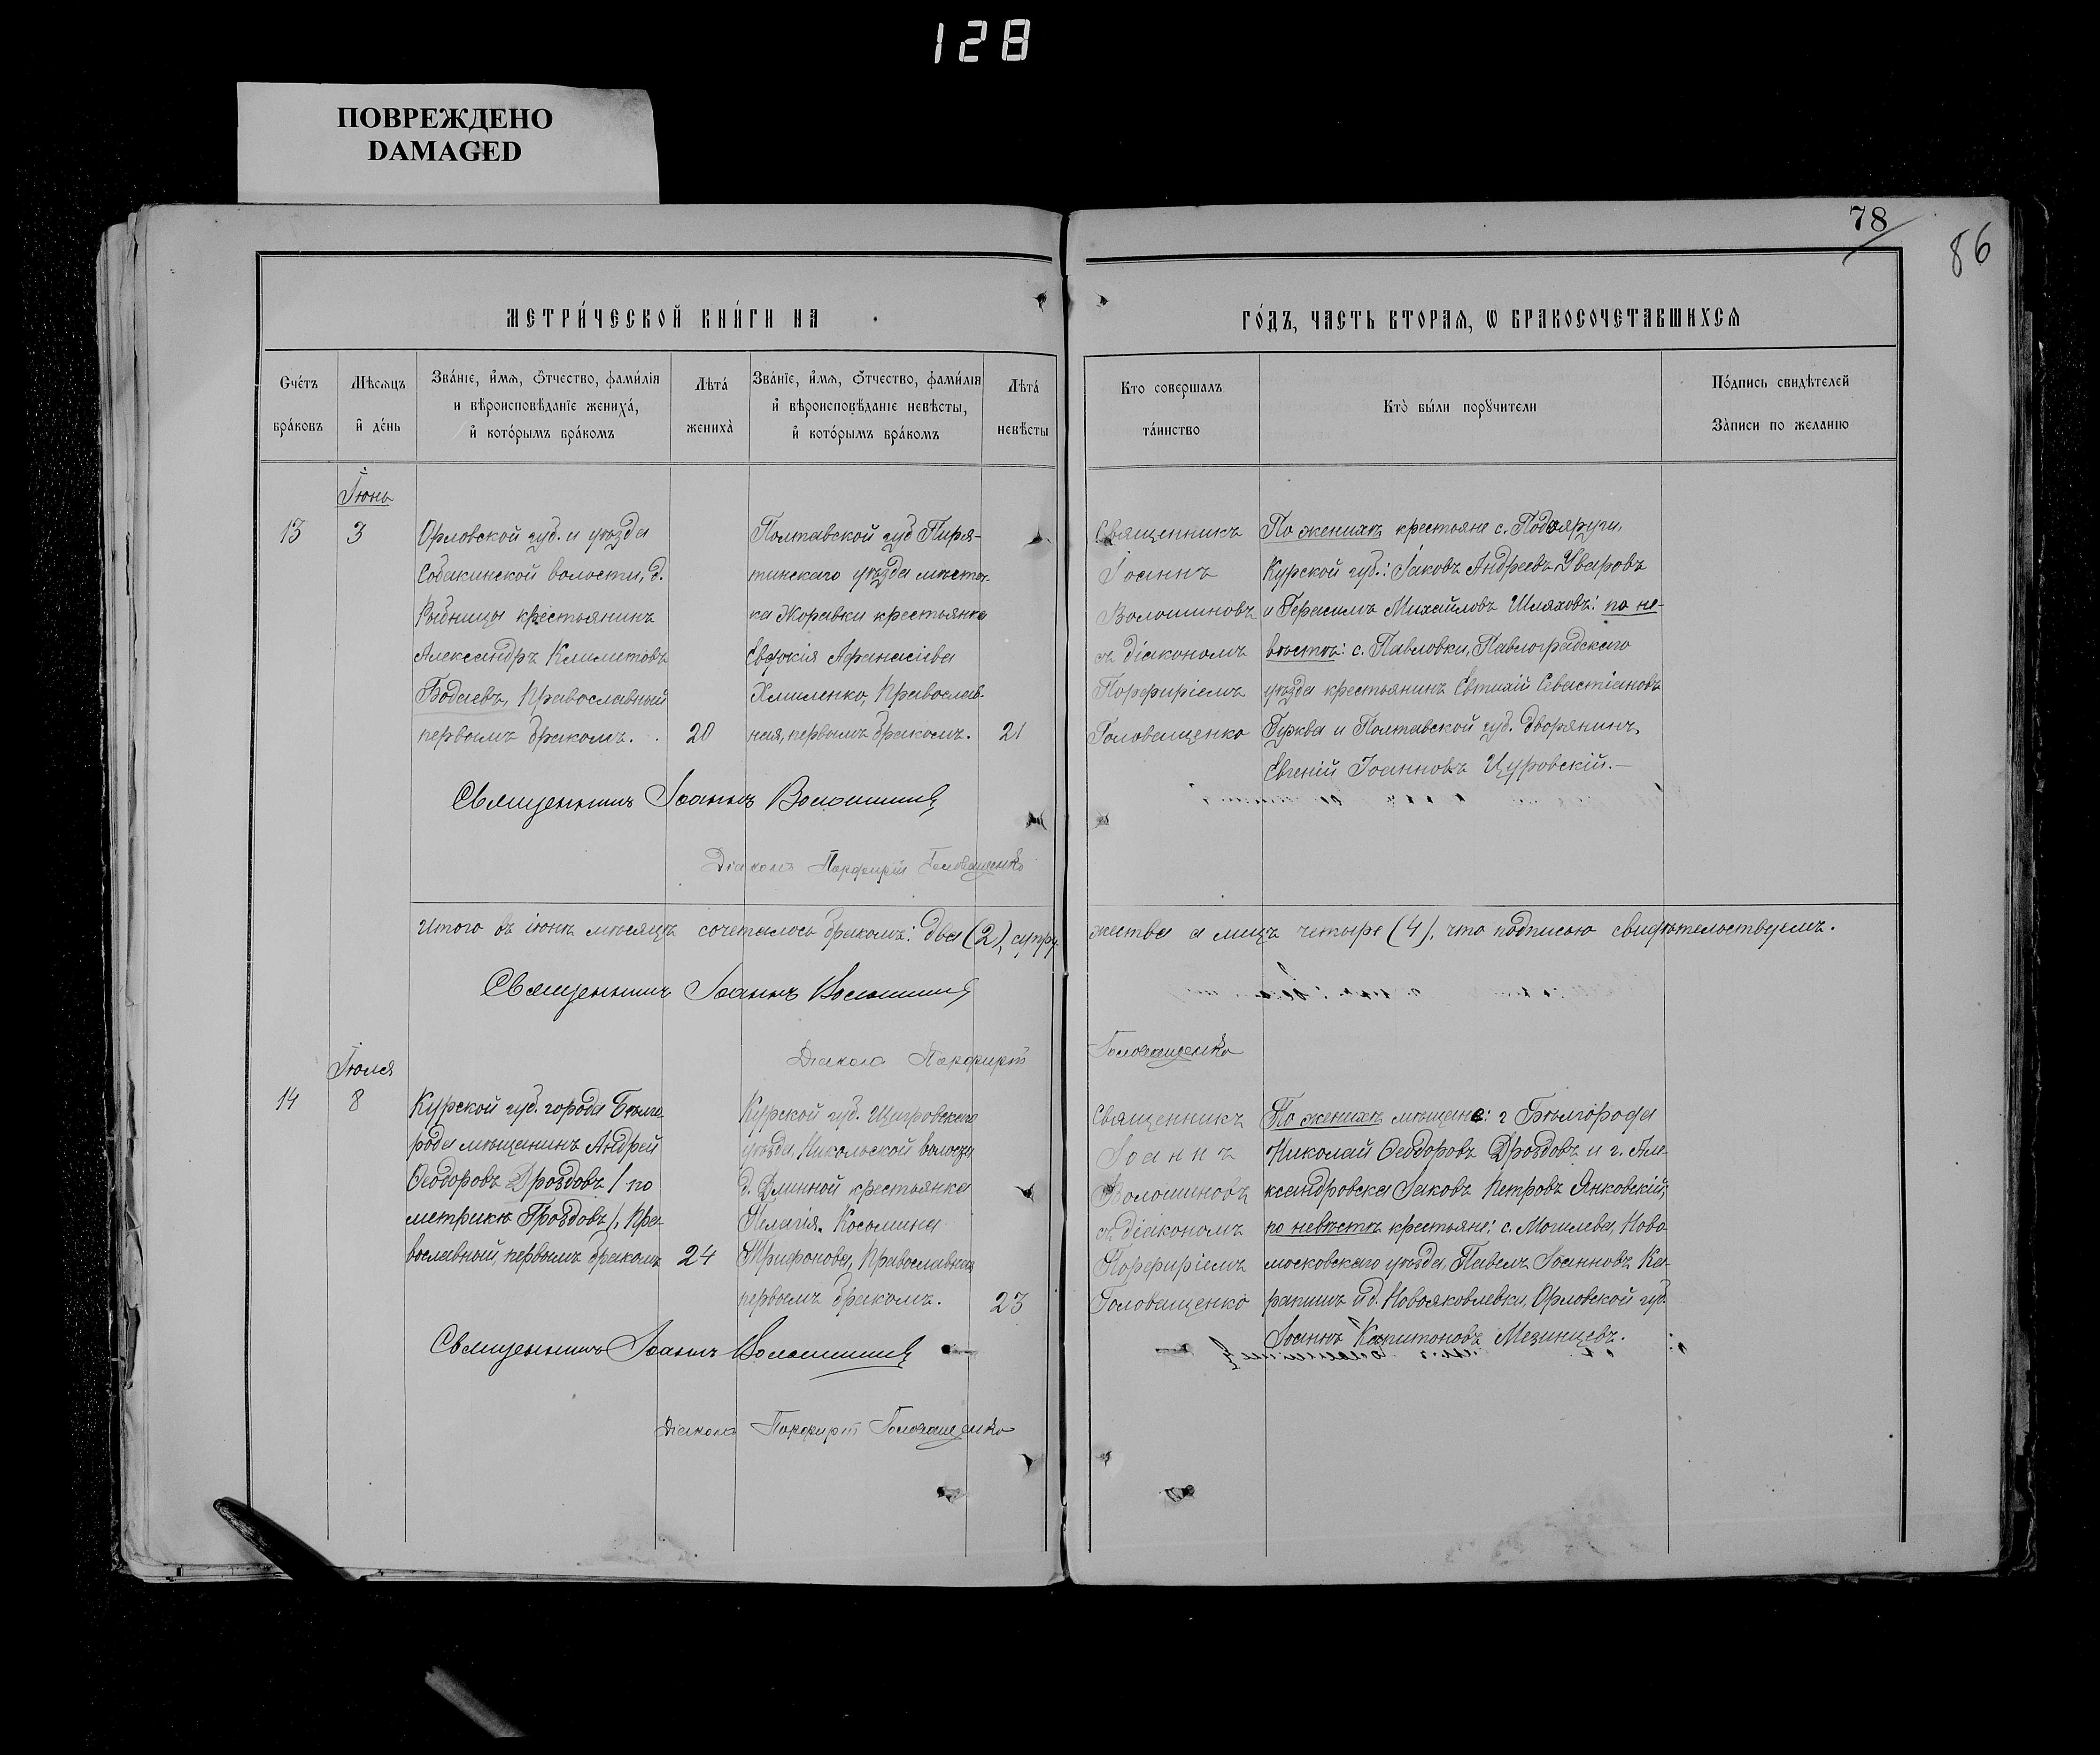 128
ПОВРЕЖДЕНО
DAMAGED
78
86
МЕТРИ́ЧЕСКОЙ КНИ́ГИ НА
ГО́ДЪ, ЧАСТЬ ВТОРАЯ, Ѡ БРАКОСОЧЕТАВШИХСЯ
Счётъ
бра́ковъ
Мѣсяцъ
и де́нь
Зва́ніе, имя, отчество, фами́лія
и вѣроисповѣданіе жениха́,
и кото́рымъ бра́комъ
Лѣта́
жениха̀
Зва́ніе, имя, отчество, фами́лія
и вѣроисповѣданіе невѣсты,
и кото́рымъ бра́комъ
Лѣта́
невѣсты
Кто совершалъ
та́инство
Кто̀ бы́ли порꙋчители
По́дпись свидѣтелей
За̀писи по желанію
Іюнь
13
3
Орловской губ. и уѣзда
Собакинской волости, д.
Рыбницы крестьянинъ
Александръ Климетовъ
Бодаевъ, Православный
первымъ бракомъ.
20
Полтавской губ Пиря-
тинскаго уѣзда мѣстеч-
ка Журавки крестьянка
Евдокія Афанасіева
Хмиленко, Православ-
ная, первымъ бракомъ.
21
Священникъ
Іоаннъ
Волошиновъ
съ діакономъ
Порфиріемъ
Головащенко
По женихѣ крестьяне с. Подъяруги,
Курской губ.: Іаковъ Андреевъ Уваровъ
и Герасимъ Михайловъ Шляховъ: по не-
вѣстѣ: с. Павловки, Павлоградскаго
уѣзда крестьянинъ Евтихій Севастіановъ
Гуква и Полтавской губ. дворянинъ
Евгеній Іоанновъ Цуровскій.—
Священникъ Іоаннъ Волошиновъ
Діаконъ Порфирій Головащенко
Итого въ іюнѣ мѣсяцѣ сочеталось бракомъ: два (2), супру-
жества а лицъ четыре (4), что подписью свидѣтельствуемъ.
Священникъ Іоаннъ Волошиновъ
Діаконъ Порфирій
Головащенко
Іюля
14
8
Курской губ. города Бѣлго-
рода мѣщанинъ Андрей
Ѳеодоровъ Дроздовъ / по
метрикѣ Гроздовъ /, Пра-
вославный, первымъ бракомъ
24
Курской губ. Щигровскаго
уѣзда, Никольской волости
д. Длинной крестьянка
Пелагія Косьмина
Трифонова, Православная
первымъ бракомъ.
23
Священникъ
Іоаннъ
Волошиновъ
съ діакономъ
Порфиріемъ
Головащенко
По женихѣ мѣщане: г Бѣлгорода
Николай Ѳеодоровъ Дроздовъ и г. Але-
ксандровска Іаковъ Петровъ Янковскій;
по невѣстѣ крестьяне: с. Могилева, Ново-
московскаго уѣзда, Павелъ Іоанновъ Ка-
рапишъ и д. Новояковлевки, Орловской губ.
Іоаннъ Капитоновъ Мезинцевъ.
Священникъ Іоаннъ Волошиновъ
Діаконъ Порфирій Головащенко